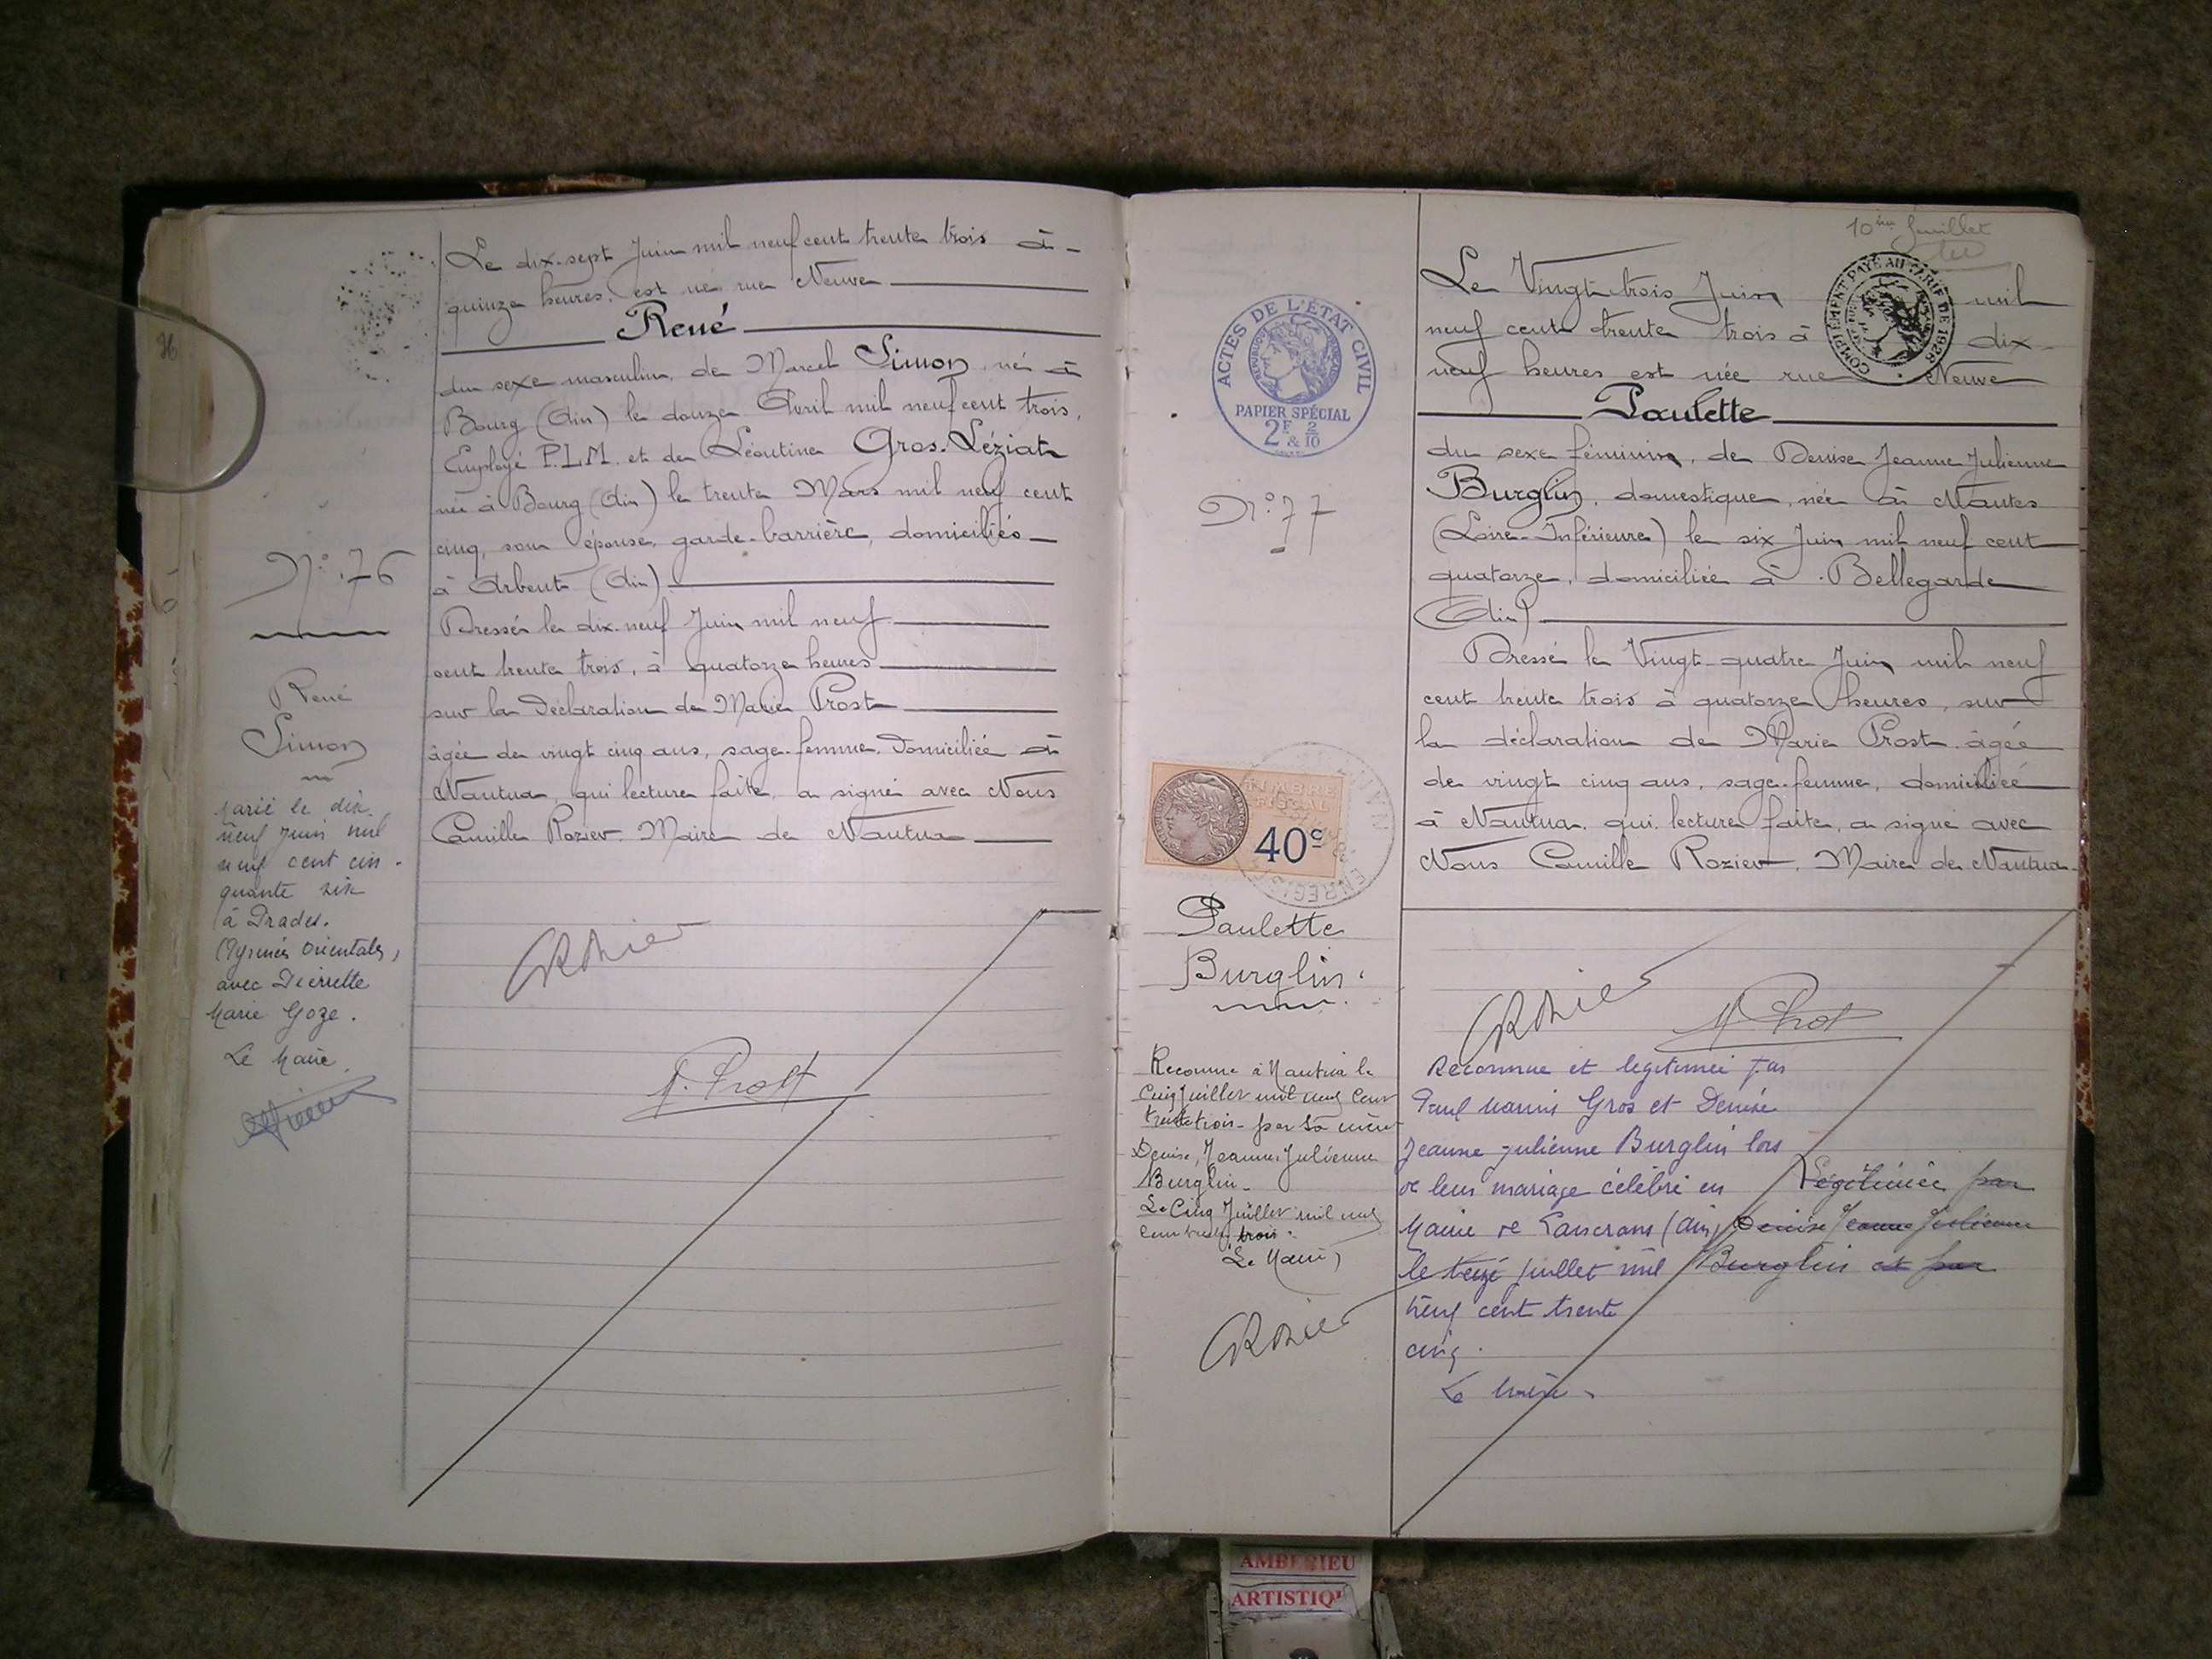 Le dix-sept Juin mil neuf cent trente trois à
quinze heures, est né rue Neuve
René
du sexe masculin, de Marcel Simon, né à
Bourg (Ain) le douze Avril mil neuf cent trois,
Employé P.L.M. et de Léontine Gros-Léziat
née à Bourg (Ain) le trente Mars mil neuf cent
cinq, son épouse, garde-barrière, domiciliés
à Arbent (Ain)
Dressé le dix-neuf Juin mil neuf
cent trente trois, à quatorze heures
sur la déclaration de Marie Prost
âgée de vingt cinq ans, sage-femme, domiciliée à
Nantua, qui lecture faite, a signé avec Nous
Camille Rozier Maire de Nantua
CRozier
M. Prost
36
N° 76
René
Simon
Marié le dix
neuf Juin mil
neuf cent cin-
quante six
à Prades.
(Pyrénées Orientales)
avec Pierrette
Marie Goze.
Le Maire
ACTES DE L'ÉTAT CIVIL
RÉPUBLIQUE FRANÇAISE
PAPIER SPÉCIAL
2F & 2/10
N° 77
TIMBRE
FISCAL
40c
Paulette
Burglin.
Reconnue à Nantua le
Cinq Juillet mil neuf cent
trente trois - par sa mère
Denise, Jeanne, Julienne
Burglin -
Le Cinq Juillet mil neuf
cent trente trois.
Le Maire,
CRozier
10ème feuillet
COMPLÉMENT PAYÉ AU TARIF DE 1926
Le Vingt trois Juin mil
neuf cent trente trois à dix-
neuf heures est née rue Neuve
Paulette
du sexe féminin, de Denise Jeanne Julienne
Burglin, domestique, née à Nantes
(Loire-Inférieure) le six Juin mil neuf cent
quatorze, domiciliée à Bellegarde
(Ain)
Dressé le Vingt-quatre Juin mil neuf
cent trente trois à quatorze heures, sur
la déclaration de Marie Prost âgée
de vingt cinq ans, sage-femme, domiciliée
à Nantua, qui, lecture faite, a signé avec
Nous Camille Rozier, Maire de Nantua.
CRozier
M Prost
Reconnue et légitimée par
Paul Marius Gros et Denise
Jeanne Julienne Burglin lors
de leur mariage célébré en
Mairie de Lancrans (Ain)
le treize juillet mil
neuf cent trente
cinq.
Le Maire
Légitimée par
Denise Jeanne Julienne
Burglin et par
AMBERIEU
ARTISTIQ